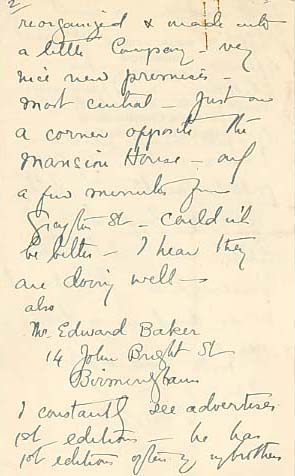 2
reorganized & made into
a little Company – very
nice new premises –
most central – just on
a corner opposite the
Mansion House – only
a few minutes from
Grafton St – couldn't
be better – I hear they
are doing well –
also
Mr. Edward Baker
14 John Bright St
Birmingham
I constantly see advertises
1st editions – he has
1st editions often of my brothers